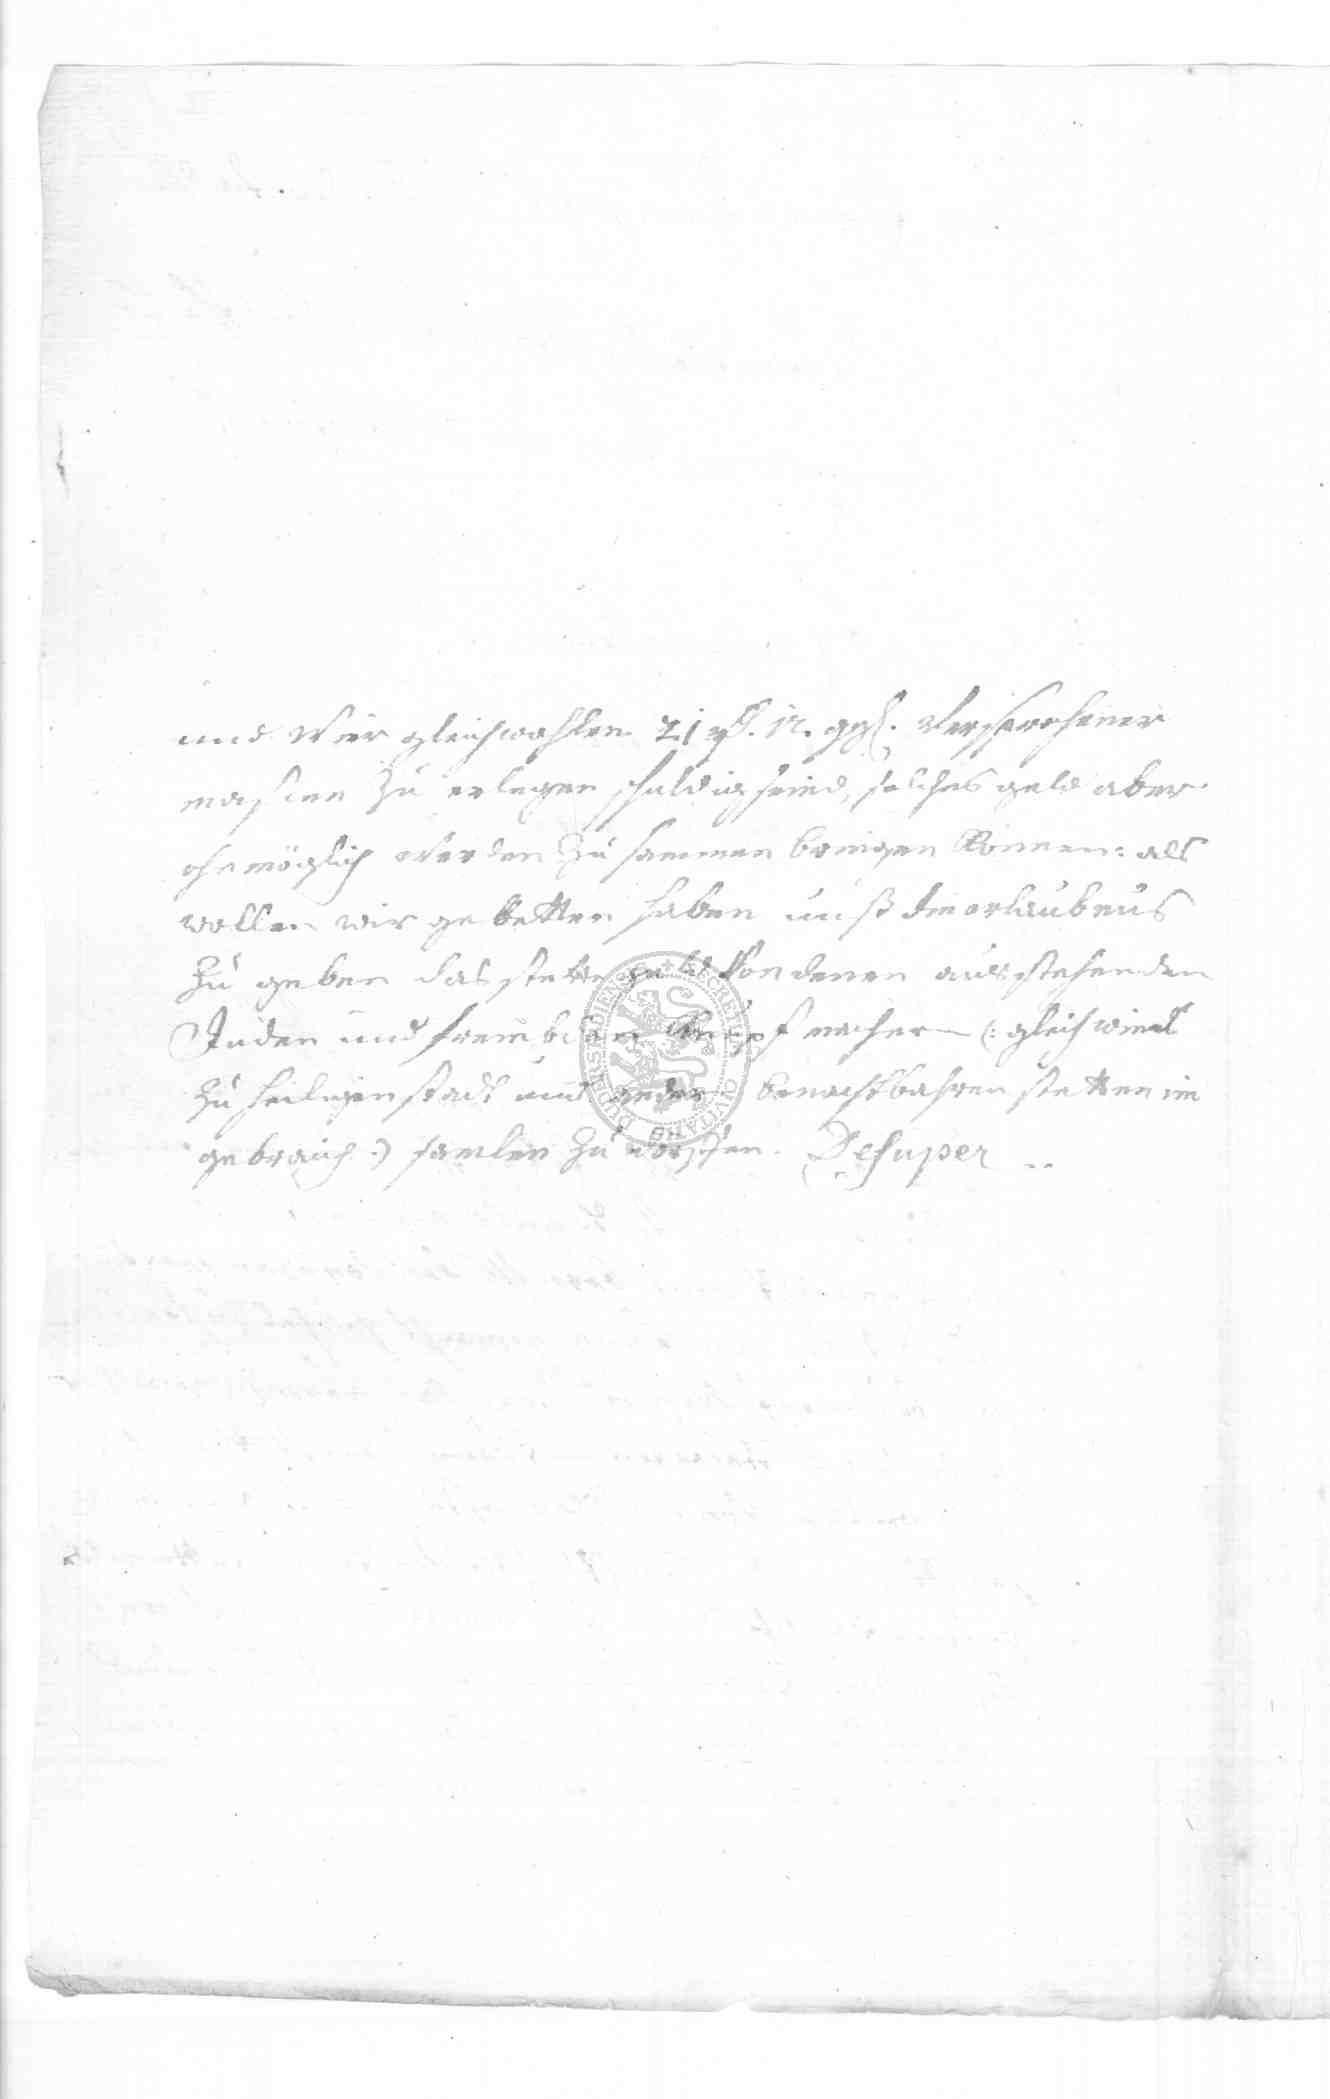 und Wier gleichwohlen 21 rthl. 12. ggl. Versprochener
massen zu erlegen schuldig seind, solches geld aber
ohnmöglich werden zusammen bringen können: als
wollen wir gebetten haben unß die erlaubnus
zu geben das stette geld Von denen ausstehenden
Juden und frembden (: gleich wie
zu heiligenstadt und andern benachtbahrten stetten im
gebrauch :) samlen zu dorffen. Desuper